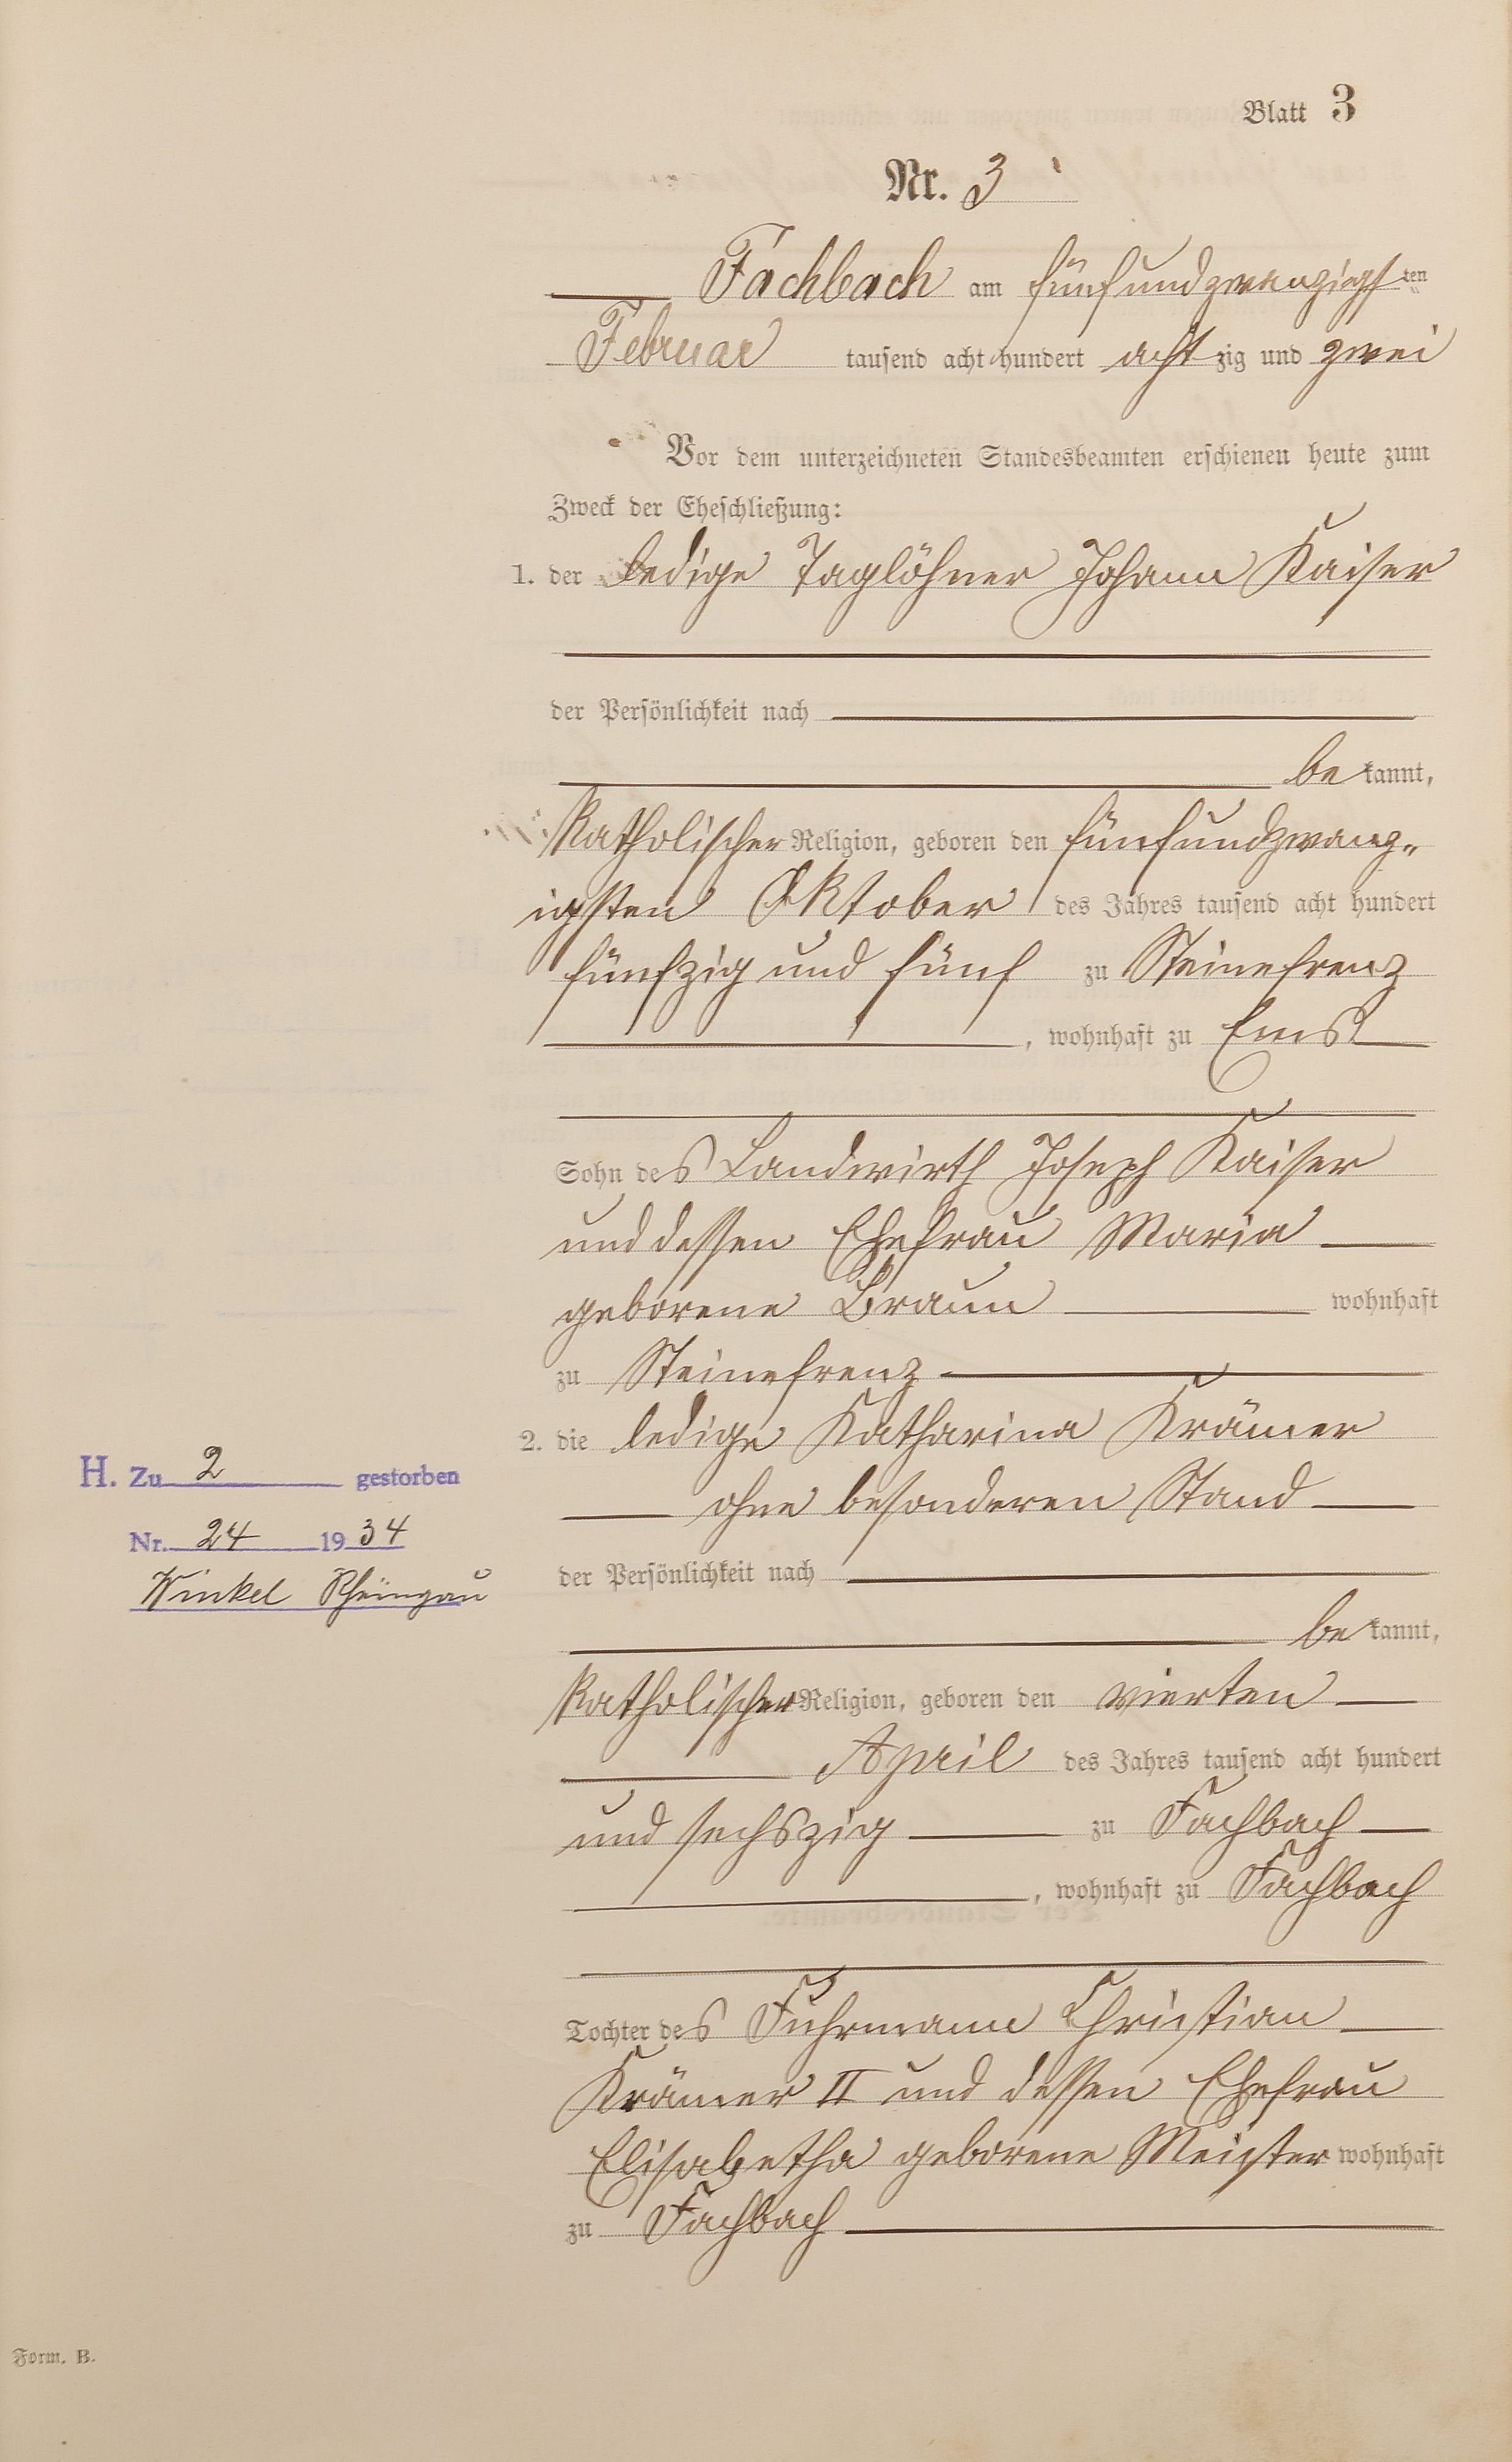 Blatt 3
Nr. 3
Fachbach am fünfundzwanzigsten
Februar tausend acht hundert achtzig und zwei
Vor dem unterzeichneten Standesbeamten erschienen heute zum
Zweck der Eheschließung:
1. der ledige Taglöhner Johann Kaiser
der Persönlichkeit nach
bekannt,
katholischer Religion, geboren den fünfundzwanz„
igsten Oktober des Jahres tausend acht hundert
fünfzig und fünf zu Steinefrenz
, wohnhaft zu Ems
Sohn des Landwirth Joseph Kaiser
und dessen Ehefrau Maria
geborene Braun wohnhaft
zu Steinefrenz
2. die ledige Katharina Krämer
ohne besonderen Stand
H. Zu 2 gestorben
Nr. 24 1934
Winkel Rheingau
der Persönlichkeit nach
bekannt,
katholischer Religion, geboren den vierten
April des Jahres tausend acht hundert
und sechszig zu Fachbach
, wohnhaft zu Fachbach
Tochter des Fuhrmann Christian
Krämer II und dessen Ehefrau
Elisabetha geborene Meister wohnhaft
zu Fachbach
Form. B.